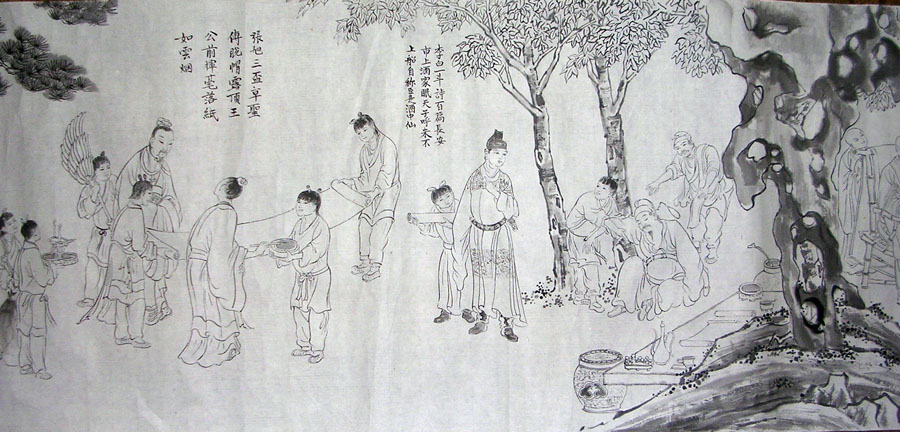 李白一斗詩百篇長安
市上酒家眠天子呼来不
上船自称臣是酒中仙
張旭三盃草聖
傳脫帽露頂王
公前揮毫落紙
如雲烟